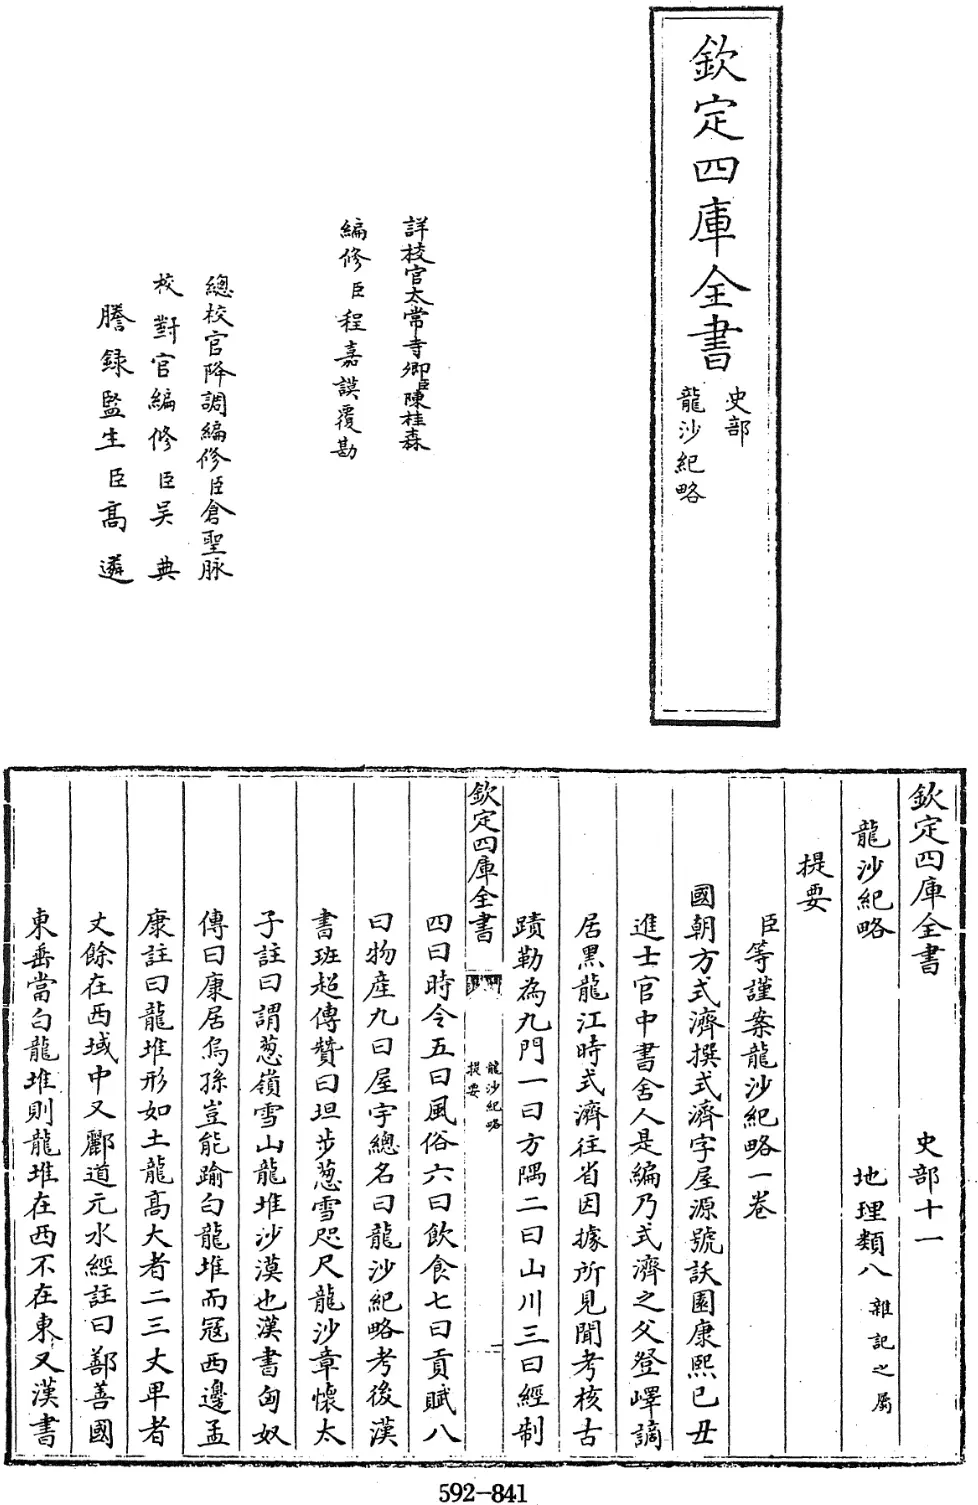 欽定四庫全書
史部
龍沙紀略
詳校官太常寺卿臣陳桂森
編修臣程嘉謨覆勘
總校官降調編修臣倉聖脉
校對官編修臣吴典
謄錄監生臣髙遴
欽定四庫全書 史部十一
龍沙紀略 地理類八雜記之屬
提要
臣等謹案龍沙紀略一卷
國朝方式濟撰式濟字屋源號沃園康熙己丑
進士官中書舍人是編乃式濟之父登嶧謫
居黒龍江時式濟往省因據所見聞考核古
蹟勒為九門一曰方隅二曰山川三曰經制
欽定四庫全書
龍沙紀略
提要
一
四曰時令五曰風俗六曰飲食七曰貢賦八
曰物産九曰屋宇總名曰龍沙紀略考後漢
書班超傳贊曰坦步葱雪咫尺龍沙章懷太
子註曰謂葱嶺雪山龍堆沙漠也漢書匈奴
傳曰康居烏孫豈能踰白龍堆而冦西邊孟
康註曰龍堆形如土龍髙大者二三丈卑者
丈餘在西域中又酈道元水經註曰鄯善國
東垂當白龍堆則龍堆在西不在東又漢書
592-841